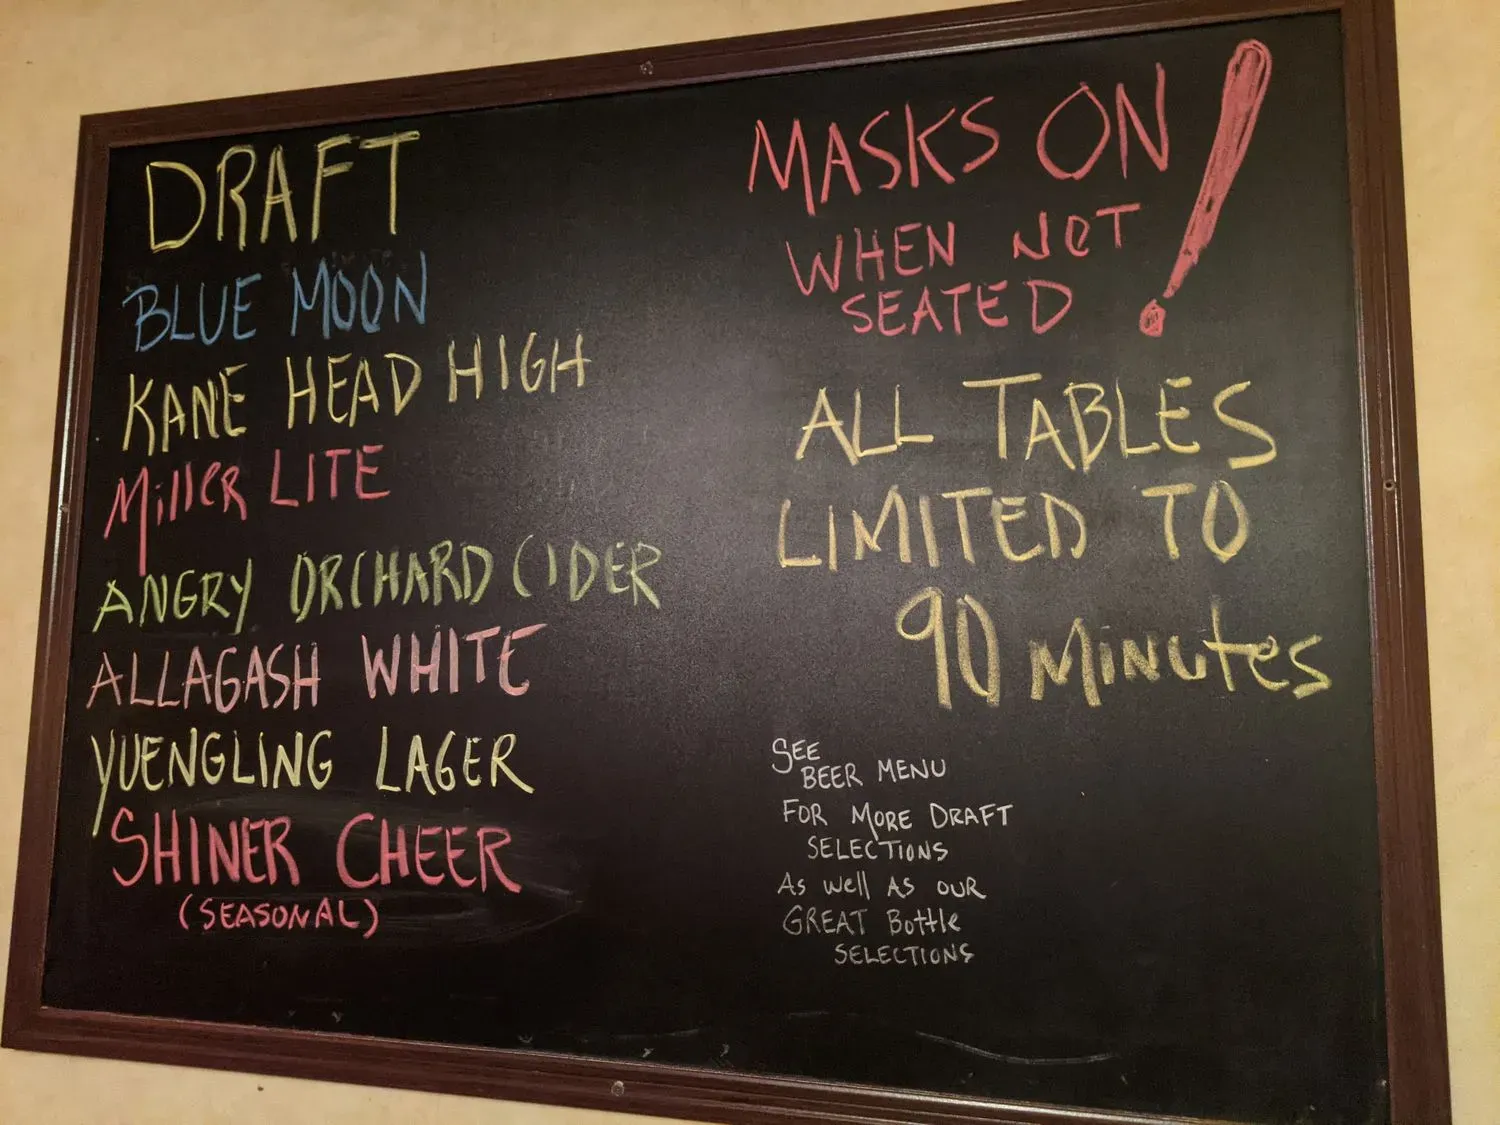 DRAFT
BLUE MOON
KANE HEAD HIGH
Miller LITE
ANGRY ORCHARD CIDER
ALLAGASH WHITE
YUENGLING LAGER
SHINER CHEER
(SEASONAL)
MASKS ON!
WHEN NOT
SEATED
ALL TABLES
LIMITED TO
90 Minutes
SEE
BEER MENU
FOR MORE DRAFT
SELECTIONS
As well AS OUR
GREAT Bottle
SELECTIONS